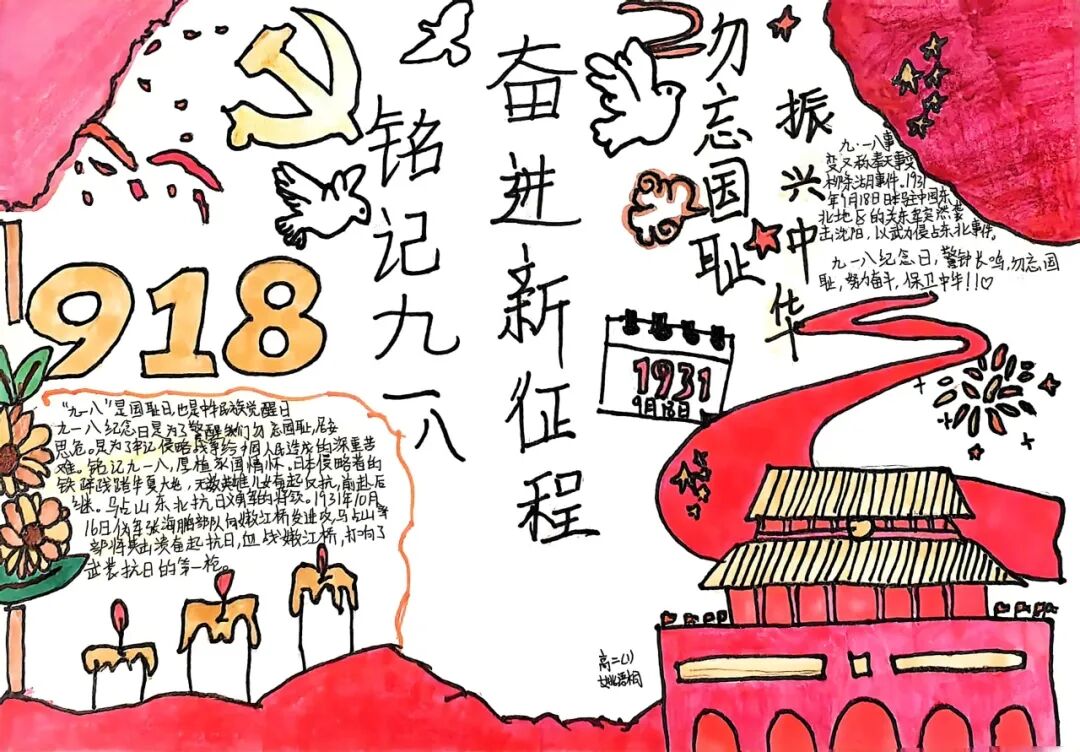 铭记九一八
奋进新征程
勿忘国耻
振兴中华
918
1931
9月18日
九·一八事
变又称奉天事变
柳条湖事件。1931
年9月18日日本驻中国东
北地区的关东军突然袭
击沈阳,以武力侵占东北事件。
九一八纪念日,警钟长鸣,勿忘国
耻,努力奋斗,保卫中华!!♡
“九一八”是国耻日,也是中华民族觉醒日
九一八纪念日是为了警醒我们勿忘国耻,居安
思危。是为了牢记侵略战争给中国人民造成的深重苦
难。铭记九一八,厚植家国情怀。日本侵略者的
铁蹄践踏华夏大地,无数英雄儿女奋起反抗,前赴后
继。马占山东北抗日义勇军的将领。1931年10月
16日伪军张海鹏部队向嫩江桥发进攻,马占山率
部将其击溃奋起抗日,血战嫩江桥,打响了
武装抗日的第一枪。
高二(1)